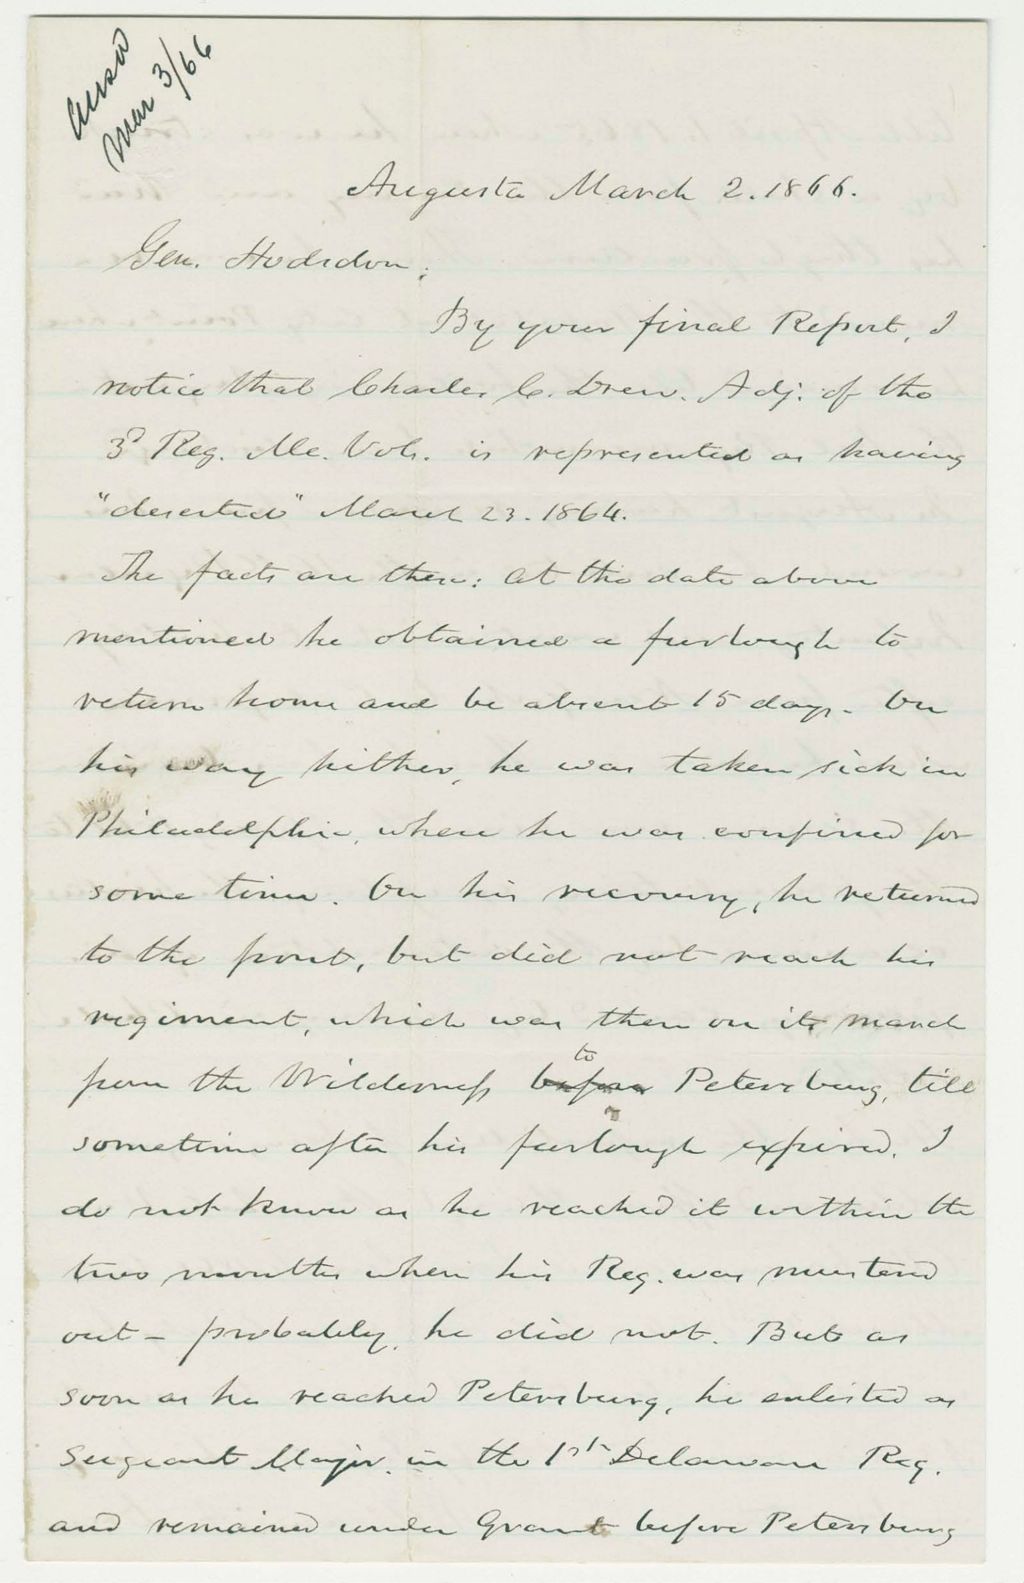 Answd
Mar 3/66
Augusta March 2. 1866.
Gen. Hodsdon;
By your final Report, I
notice that Charles C. Drew. Adj. of the
3d Reg. Me. Vols. is represented as having
"deserted" March 23. 1864.
The facts are these: At the date above
mentioned he obtained a furlough to
return home and be absent 15 days. On
his way hither, he was taken sick in
Philadelphia, where he was confined for
some time. On his recovery, he returned
to the front, but did not reach his
regiment, which was then on its march
from the Wilderness before to Petersburg, till
sometime after his furlough expired. I
do not know as he reached it within the
two months when his Reg. was mustered
out - probably, he did not. But as
soon as he reached Petersburg, he enlisted as
Sergeant Major, in the 1st Delaware Reg.
and remained under Grant before Petersburg